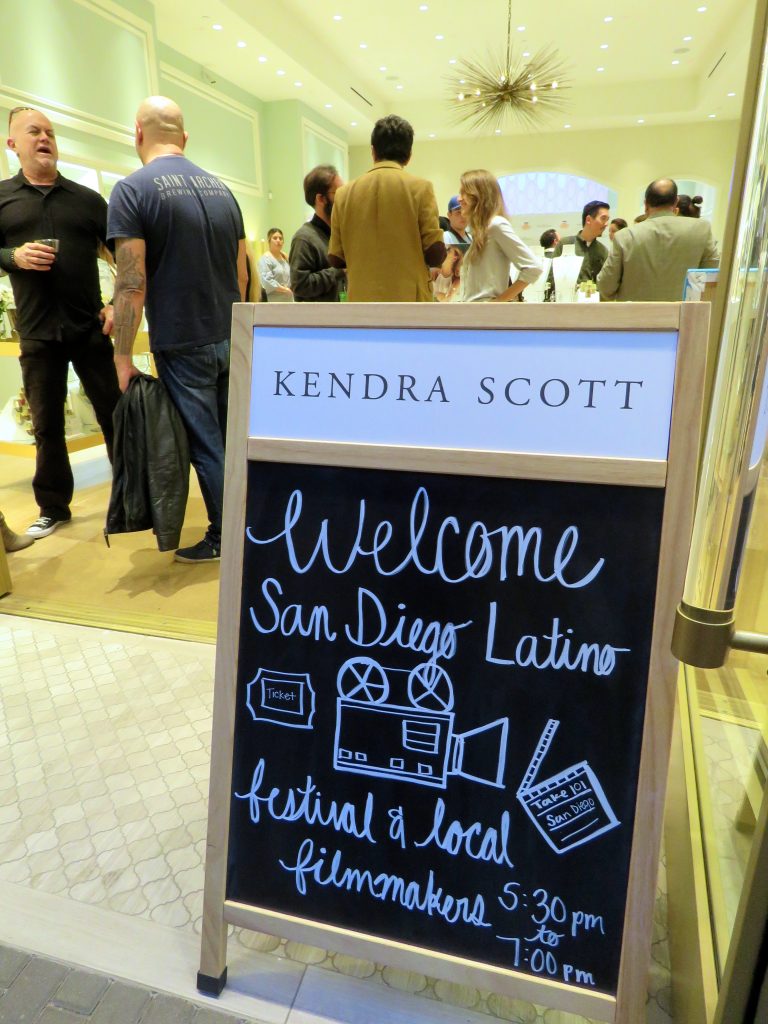 SAINT ARCHER
BREWING COMPANY
KENDRA SCOTT
Welcome
San Diego Latino
Ticket
Take 101
San Diego
festival & local
filmmakers
5:30 pm
to
7:00 pm